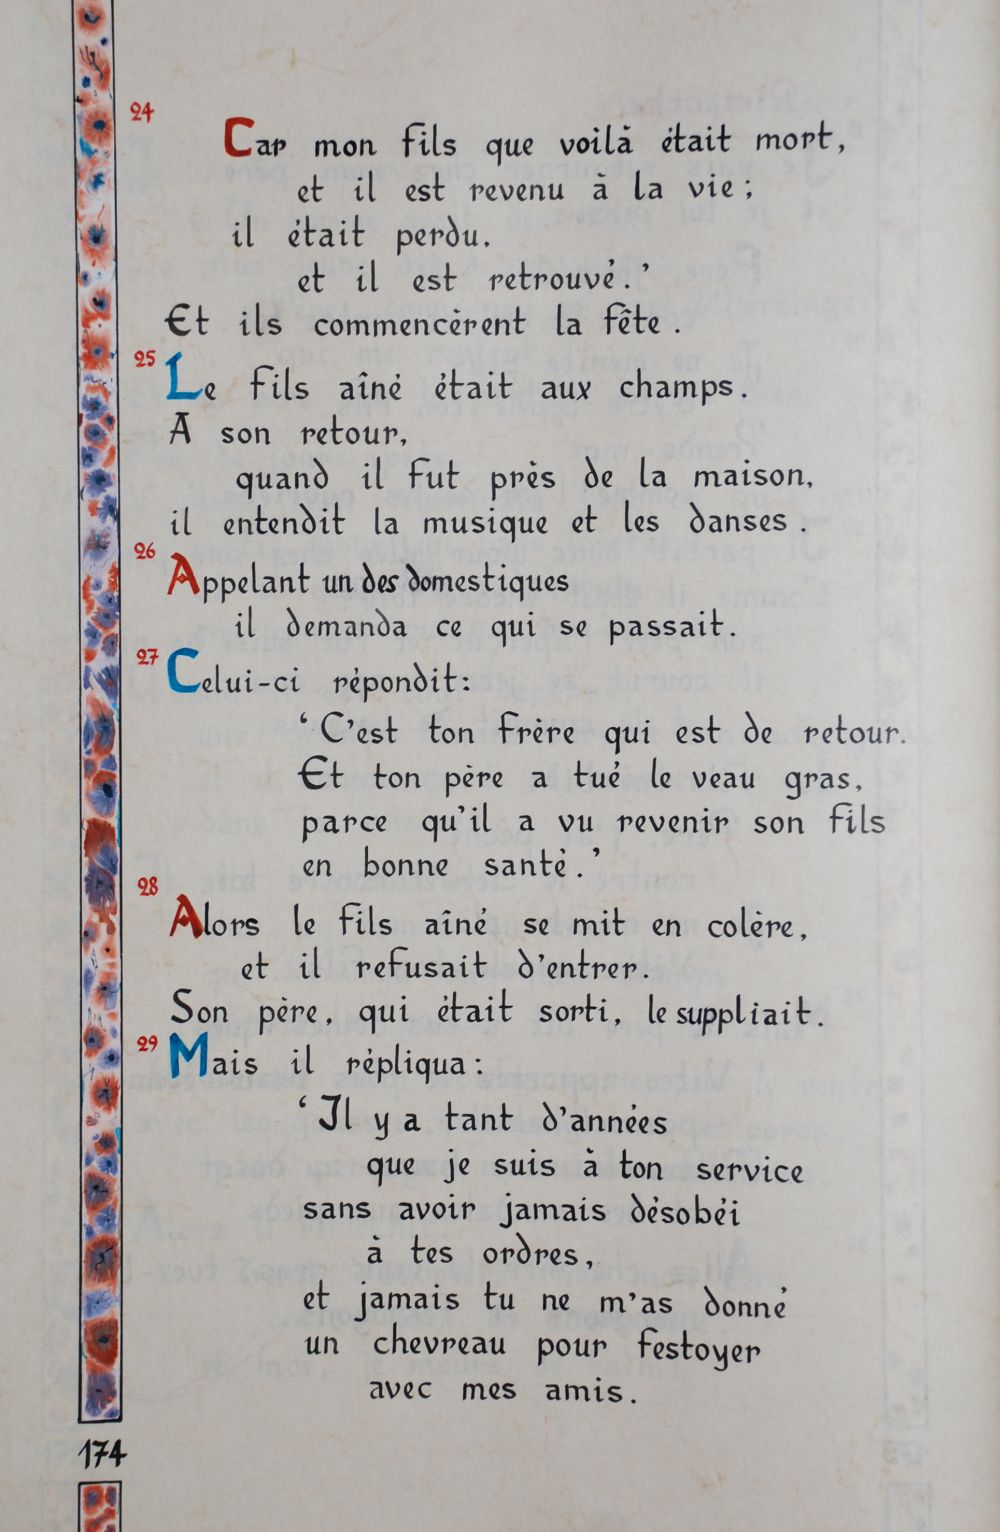 24
Car mon fils que voilà était mort,
et il est revenu à la vie ;
il était perdu,
et il est retrouvé. ’
Et ils commencèrent la fête .
25
Le fils aîné était aux champs.
A son retour,
quand il fut près de la maison,
il entendit la musique et les danses .
26
Appelant un des domestiques
il demanda ce qui se passait.
27
Celui-ci répondit:
‘ C'est ton frère qui est de retour.
Et ton père a tué le veau gras,
parce qu'il a vu revenir son fils
en bonne santé. ’
28
Alors le fils aîné se mit en colère,
et il refusait d'entrer.
Son père, qui était sorti, le suppliait.
29
Mais il répliqua:
‘ Il y a tant d'années
que je suis à ton service
sans avoir jamais désobéi
à tes ordres,
et jamais tu ne m'as donné
un chevreau pour festoyer
avec mes amis.
174